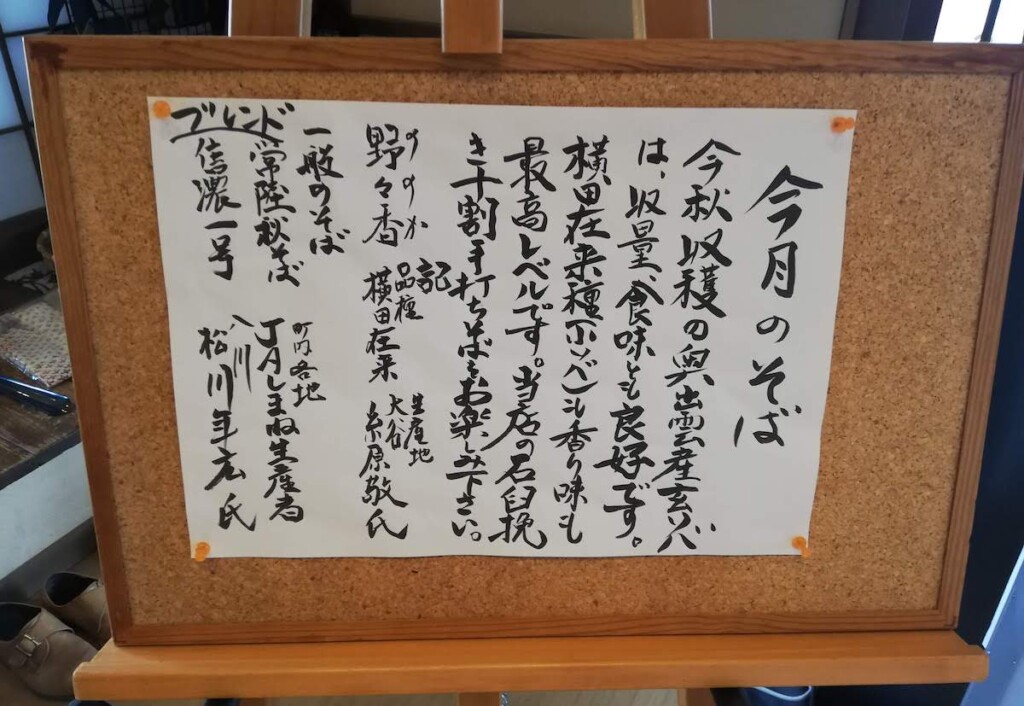 今月のそば
今秋収穫の奥出雲産玄ソバ
は、収量、食味とも良好です。
横田在来種(小ソバ)も香り味も
最高レベルです。当店の石臼挽
き十割手打ちそばをお楽しみ下さい。
記
品種
生産地
ののか
野々香 横田在来 大谷 糸原敬氏
一般のそば
町内各地
常陸秋そば JAしまね生産者
ブレンド
八川
信濃一号 松川年広氏